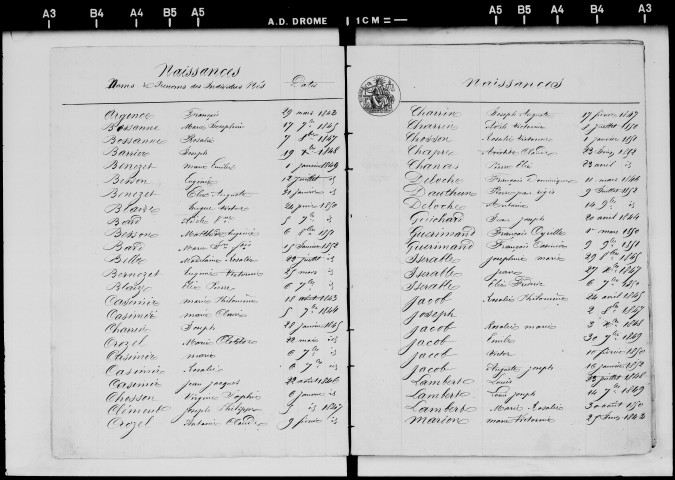 A3 B4 A4 B5 A5 A.D. DROME 1 CM A5 B5 A4 B4 A3
Naissances
Noms & Prénoms des Individus Nés Dates
Argence François 29 mars 1843
Bossanne Marie Joséphine 17 7bre 1845
Bossanne Rosalie 7 8bre 1847
Barrier Joseph 19 7bre 1848
Benezet Marie Emilie 1 janvier 1849
Besson Eugénie 12 juillet id
Benezet Elie Auguste 21 janvier id
Blaise 24 janvier 1850
Bard 5 7bre id
Besson Matthieu 6 8bre 1851
Bard Marie 15 janvier 1852
Bille Madelaine Rosalie 22 juillet id
Bernezet Eugénie Victorine 25 mars id
Blaise Elie Pierre 6 7bre id
Casimir marie Philomène 18 août 1843
Casimir marie Claire 5 7bre 1844
Chancel Joseph 28 janvier 1845
Crozel Marie Clotilde 22 mars id
Casimir marie 6 7bre id
Casimir Rosalie 6 7bre id
Casimir jean jacques 22 août 1846
Chosson Virginie Sophie 6 janvier id
Clément Joseph Philippe 5 id 1847
Crozel Antoine Claude 9 février id
Naissances
Charrin Joseph Auguste 17 février 1847
Charrin Victorine 1 juillet 1850
Chosson Rosalie Victorine 1 janvier 1851
Chapre
Chanas Pierre Elie 23 avril id
Deloche François Dominique 11 mars 1846
Dauthun 9 juillet 1852
Deloche Antoine 14 9bre id
Guichard Jean joseph 20 avril 1844
Guerimand François Cyrille 1er mars 1850
Guerimand François Casimir 9 9bre 1851
Iserable Josephine marie 29 8bre 1845
Iserable jean 27 Xbre 1847
Iserable Elie Fréderic 6 7bre 1850
Jacob Rosalie Philomène 24 avril 1845
Joseph 2 8bre 1847
Jacob Rosalie marie 3 Xbre 1848
Jacob Emile 30 7bre 1849
Jacob Victor 10 février 1850
Jacob Auguste joseph 16 janvier 1852
Lambert Louis 25 juillet 1848
Lambert Louis joseph 14 7bre 1849
Lambert Marie Rosalie 30 août 1850
Marion marie Victorine 25 1843